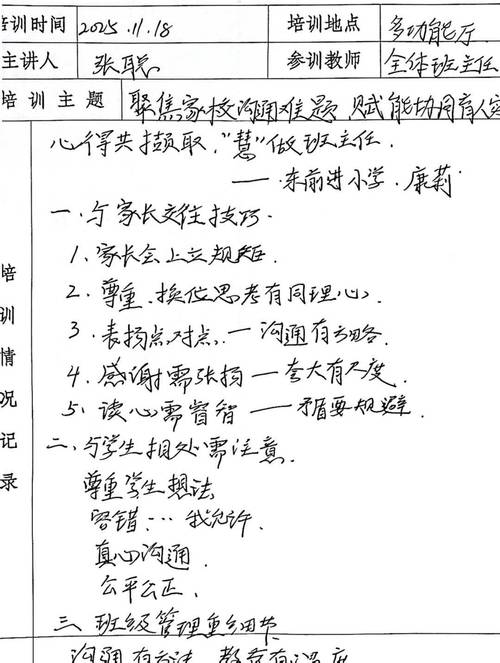 培训时间 2025.11.18 培训地点 多功能厅
主讲人 张聪 参训教师 全体班主任
培训主题 聚焦家校沟通难题,赋能协同育人
心得共撷取,“慧”做班主任
——东前进小学 康莉
一、与家长交往技巧.
1、家长会上立规矩.
2、尊重、换位思考有同理心
3、表扬点对点—沟通有方略.
4、感谢需张扬—夸大有尺度.
5、读心需睿智——矛盾要规避.
二、与学生相处需注意.
尊重学生想法
容错…我允许.
真心沟通.
公平公正.
三、班级管理重细节
沟通有方法 教育有温度
培训情况记录